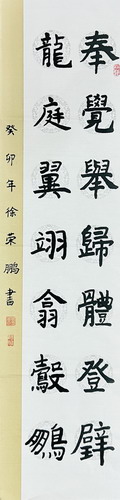 奉覺舉歸體登璧
龍庭翼翊翕鷇鵬
癸卯年徐荣鹏書